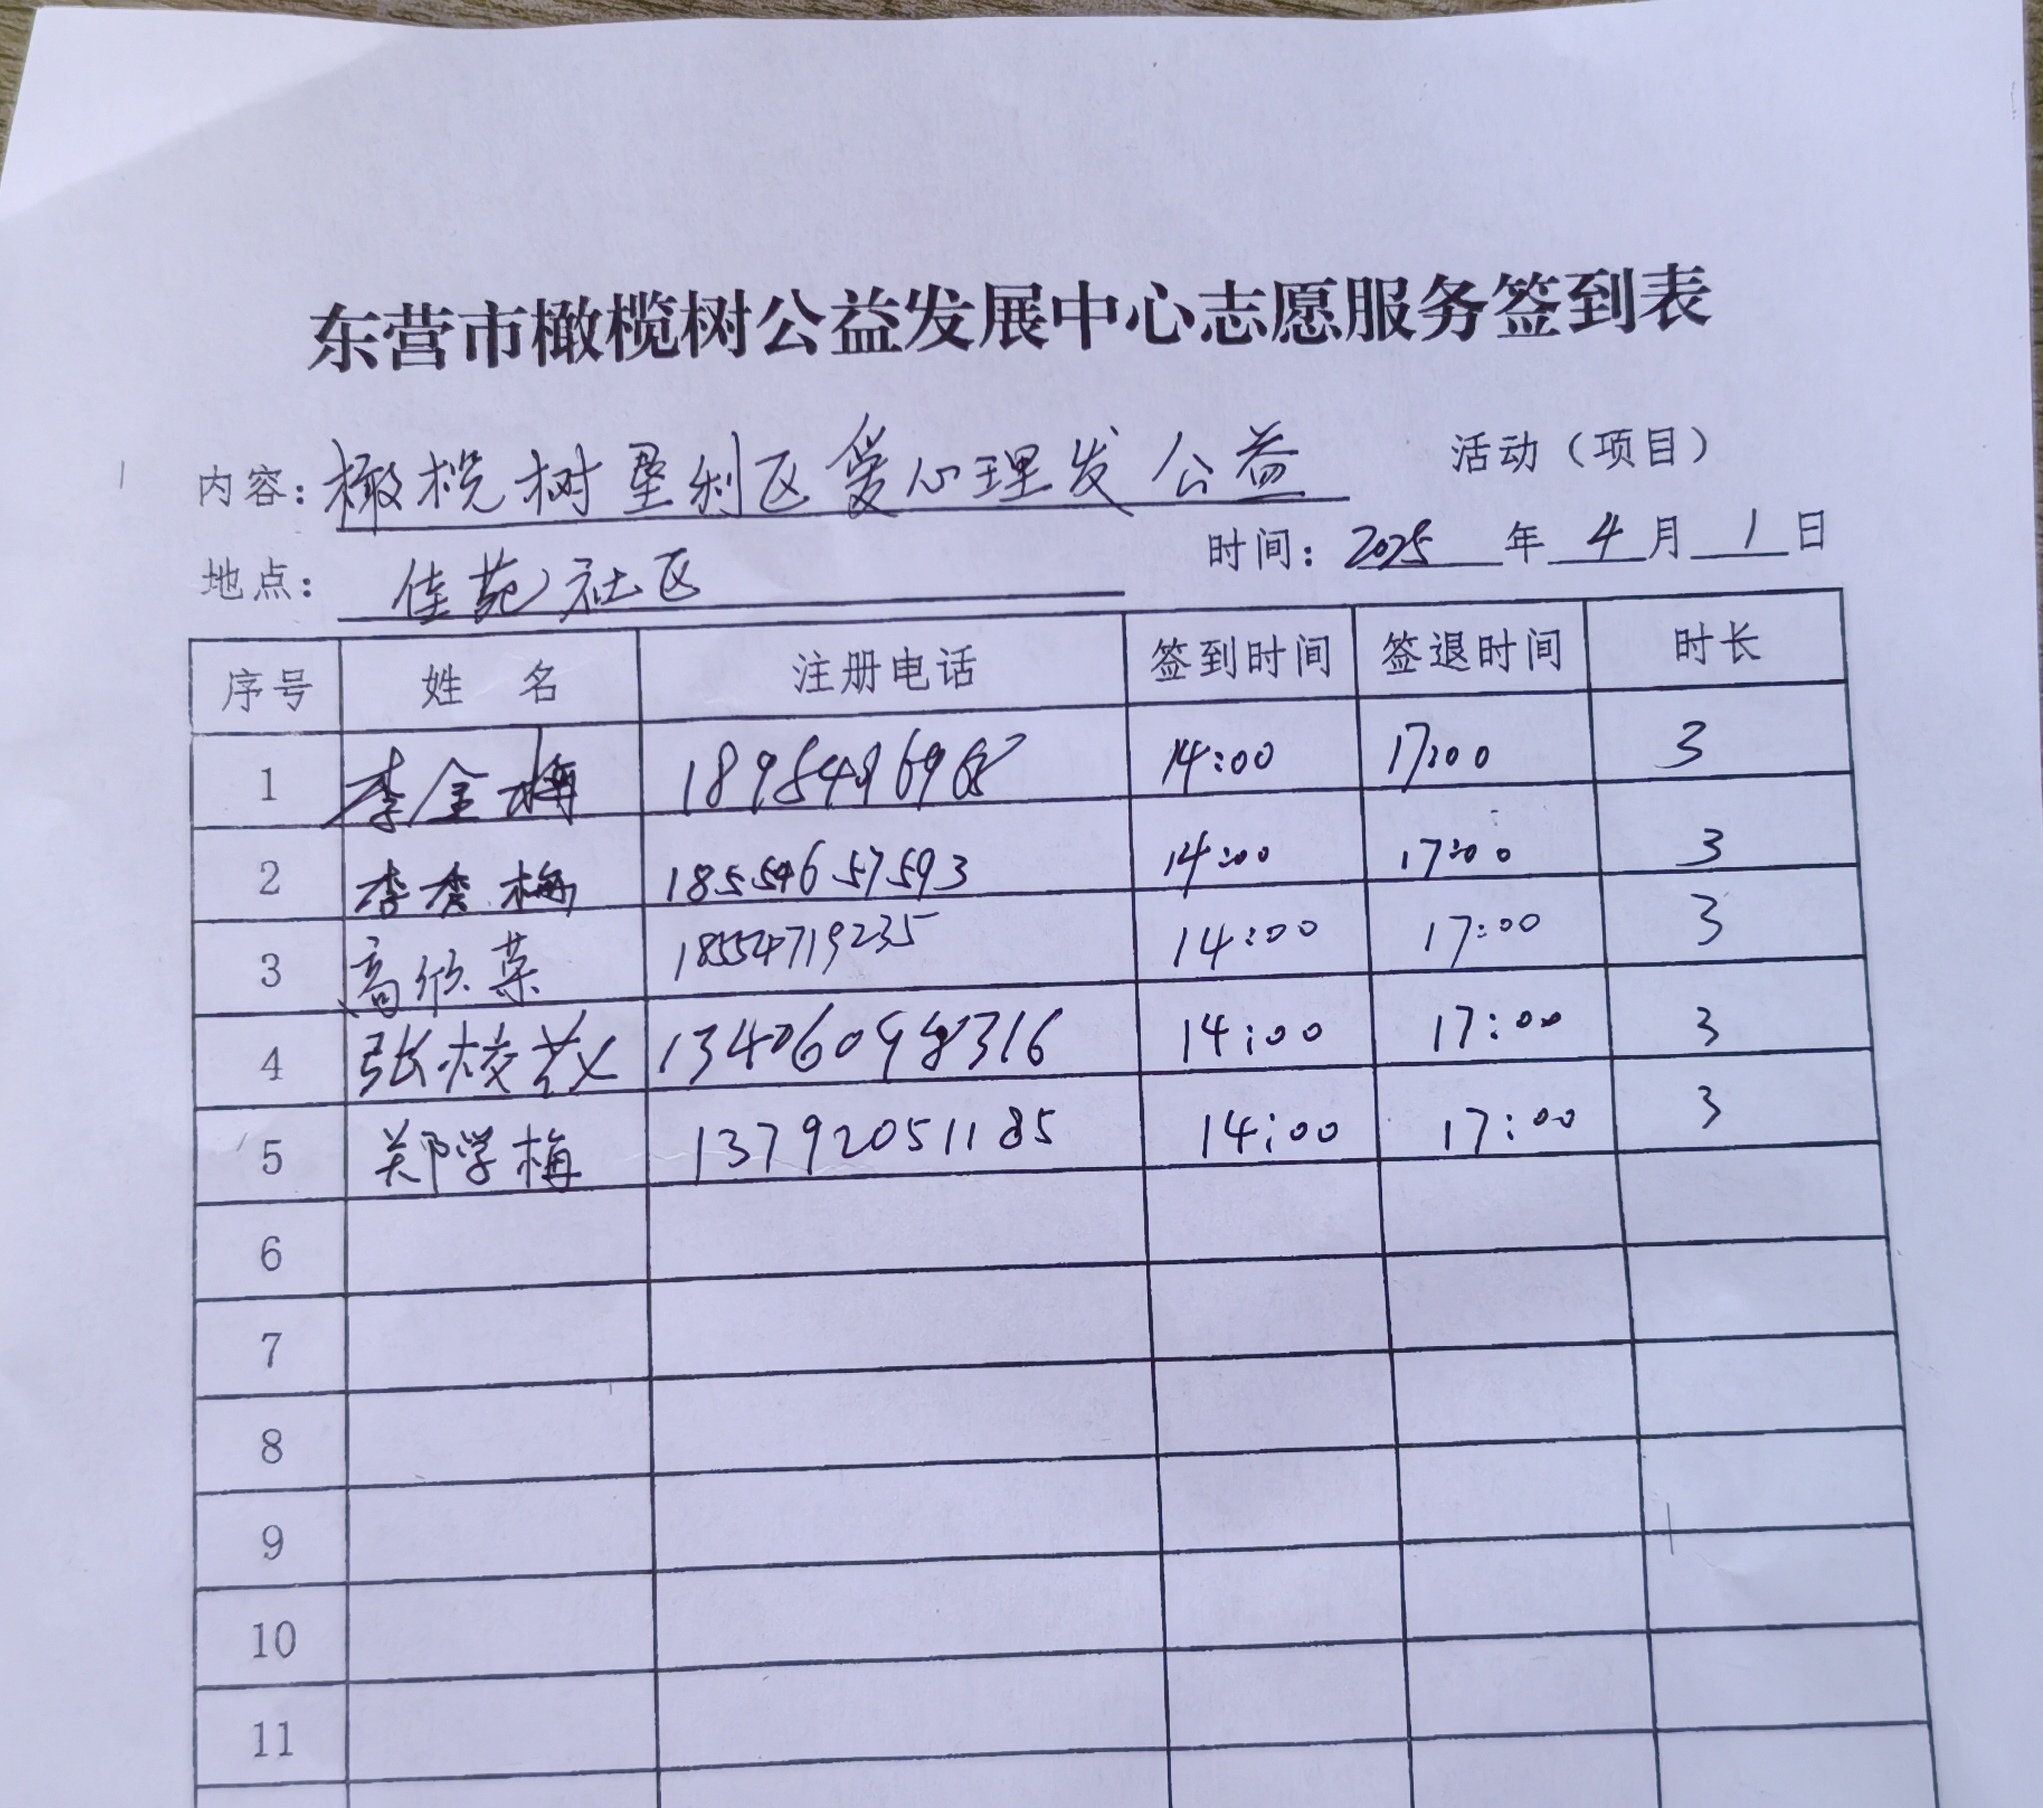 东营市橄榄树公益发展中心志愿服务签到表
内容：橄榄树垦利区爱心理发公益 活动（项目）
地点：佳苑社区 时间：2025年4月1日
序号 姓 名 注册电话 签到时间 签退时间 时长
1 李金梅 14:00 17:00 3
2 李秀梅 18554657593 14:00 17:00 3
3 高欣荣 18554719235 14:00 17:00 3
4 张校 13406098316 14:00 17:00 3
5 郑学梅 13792051185 14:00 17:00 3
6
7
8
9
10
11